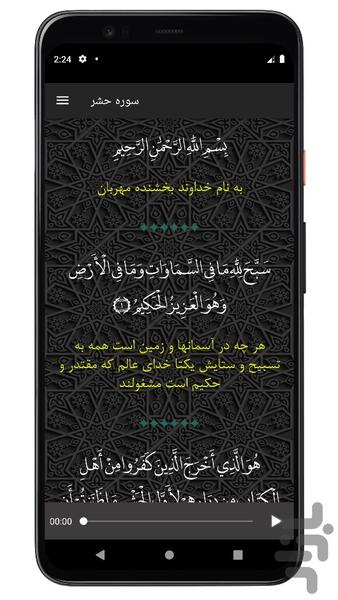 2:24
سوره حشر
بِسْمِ اللَّهِ الرَّحْمَٰنِ الرَّحِيمِ
به نام خداوند بخشنده مهربان
سَبَّحَ لِلَّهِ مَا فِي السَّمَاوَاتِ وَمَا فِي الْأَرْضِ
وَهُوَ الْعَزِيزُ الْحَكِيمُ ﴿١﴾
هر چه در آسمانها و زمین است همه به
تسبیح و ستایش یکتا خدای عالم که مقتدر و
حکیم است مشغولند
هُوَ الَّذِي أَخْرَجَ الَّذِينَ كَفَرُوا مِنْ أَهْلِ
00:00